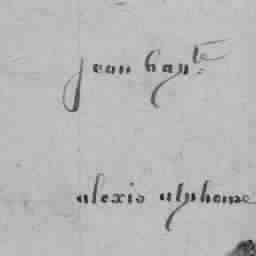 jean bapte
alexis alphonse